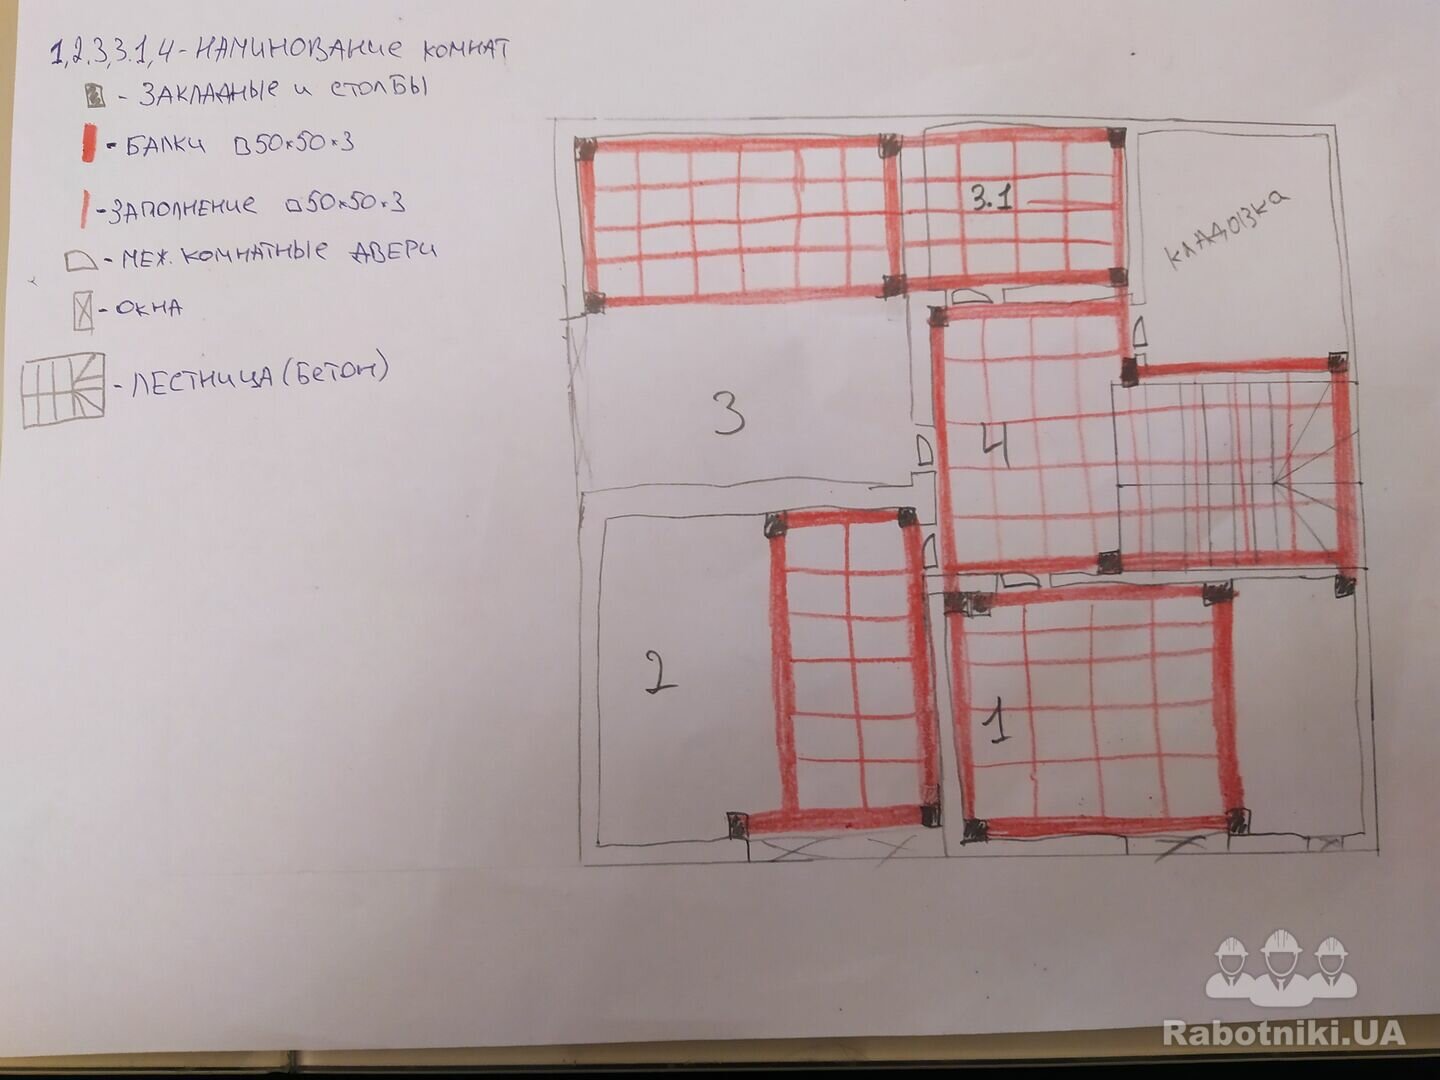 1,2,3,3.1,4 - НАМИНОВАНИЕ КОМНАТ
- ЗАКЛАДНЫЕ И СТОЛБЫ
- БАЛКИ 50×50×3
- ЗАПОЛНЕНИЕ 50×50×3
- МЕЖ. КОМНАТНЫЕ ДВЕРИ
- ОКНА
- ЛЕСТНИЦА (БЕТОН)
3.1
КЛАДОВКА
3
4
2
1
Rabotniki.UA